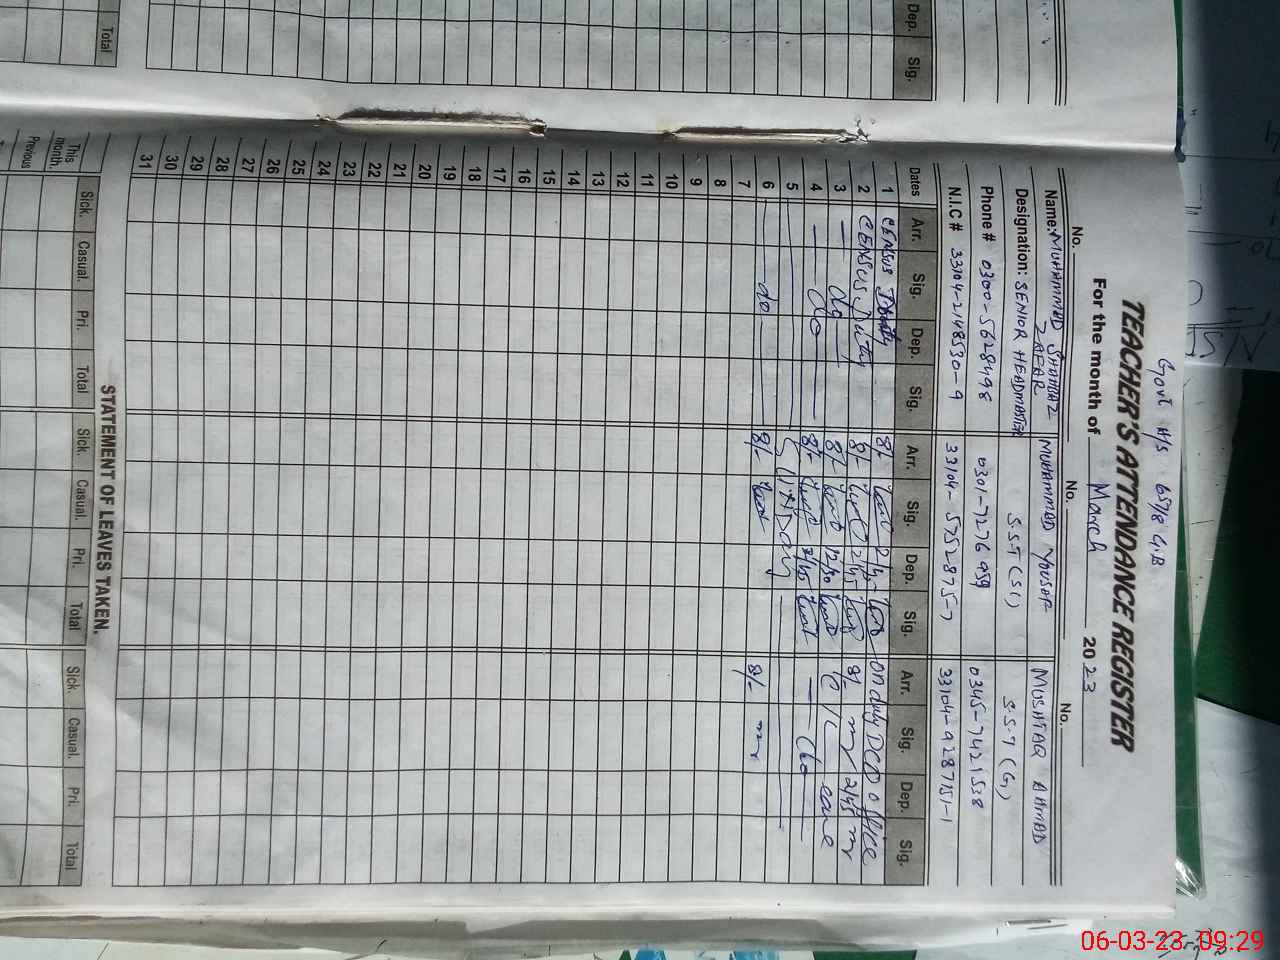 Govt H/S 657/8 G.B
TEACHER'S ATTENDANCE REGISTER
For the month of March 2023
No. No. No.
Name: MUHAMMAD SHAHBAZ ZAFAR MUHAMMAD YOUSAF MUSHTAQ AHMAD
Designation: SENIOR HEADMASTER S.S.T (SC) S.S.T (G)
Phone # 0300-5628498 0301-7276959 0345-7421538
N.I.C # 33104-2148530-9 33104-5752875-7 33104-9287151-1
Dates Arr. Sig. Dep. Sig. Arr. Sig. Dep. Sig. Arr. Sig. Dep. Sig.
1 CENSUS Duty 8/- on duty DCO office
2 CENSUS Duty 8/- 2/45 8/- 2/45
3 — do — 8/- 12/30 C/L
4 — do — 8/- 2/45 — do —
5
6 — do — 8/- 8/-
7
8
9
10
11
12
13
14
15
16
17
18
19
20
21
22
23
24
25
26
27
28
29
30
31
STATEMENT OF LEAVES TAKEN.
Sick. Casual. Pri. Total Sick. Casual. Pri. Total Sick Casual. Pri. Total
This month.
Previous
Dep. Sig.
Total
06-03-23 09:29